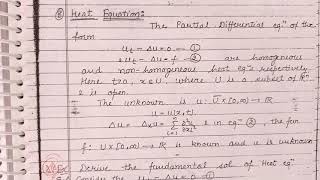 ⑧ Heat Equation:-
The Partial Differential eqⁿ of the
form
uₜ - Δu = 0 - ①
& uₜ - Δu = f - ② are homogenous
and non-homogenous heat eqⁿs respectively.
Here t>0, x∈U, where U is a subset of Rⁿ
& is open.
The unknown is u: Ū×[0,∞) → R
u = u(x,t)
Δu = Δₓu = Σⁿᵢ₌₁ ∂²u/∂xᵢ² & in eqⁿ ② the fun
f: U×[0,∞) → R is known and u is unknown
Derive the fundamental sol of Heat eqⁿ
Consider the uₜ - Δu = 0 - ①